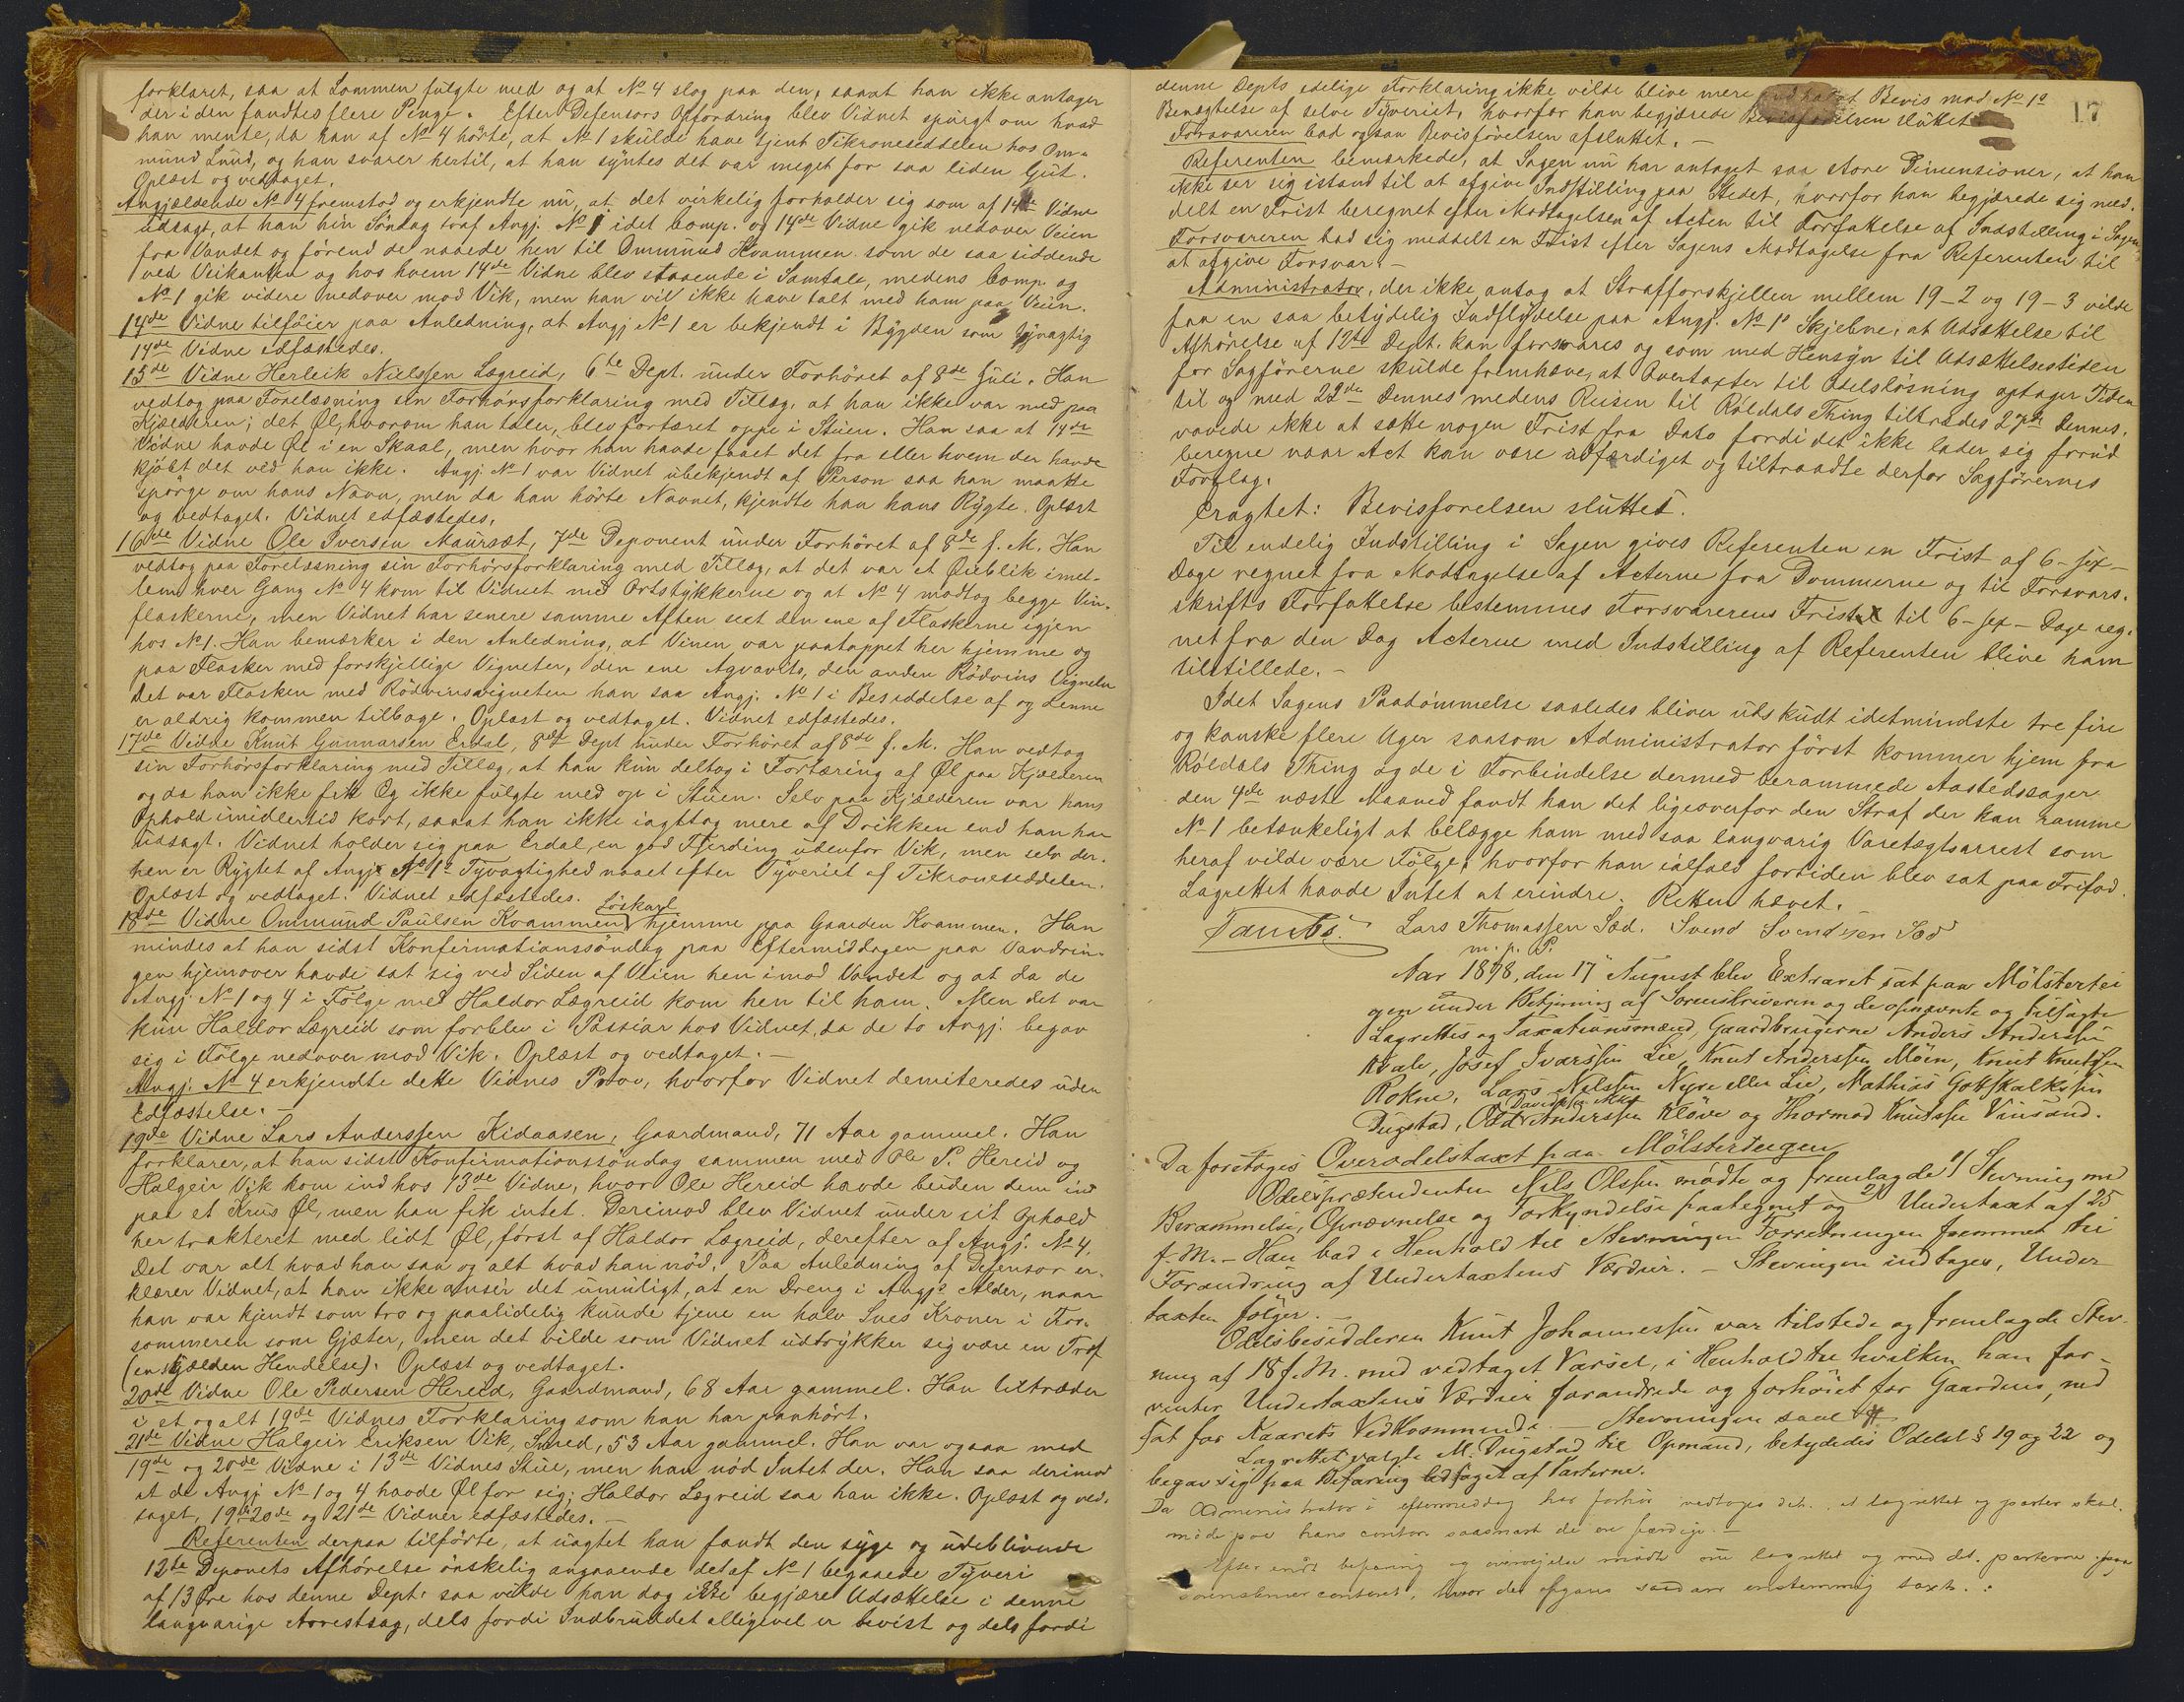 forklaret, saa at Lommen fulgte med og at No 4 slog paa den, saaat han ikke antager
der i den fandtes flere Penge. Efter Defensors Opfordring blev Vidnet spurgt om hvad
han mente, da han af No 4 hörte, at No 1 skulde have tjent Tikroneseddelen hos Om-
mund Lund, og han svarer hertil, at han syntes det var meget for saa liden Gut.
Oplæst og vedtaget.
Angjældende No 4 fremstod og erkjendte nu, at det virkelig forholder sig som af 14de Vidne
udsagt, at han hin Söndag traf Angj. No 1 idet Comp. og 14de Vidne gik nedover Veien
fra Vandet og förend de naaede hen til Ommund Kvammen som de saa siddende
ved Veikanten og hos hvem 14de Vidne blev staaende i Samtale, medens Comp. og
No 1 gik videre nedover mod Vik, men han vil ikke have talt med ham paa Veien.
14de Vidne tilföier paa Anledning, at Angj No 1 er bekjendt i Bygden som tyvagtig
14de Vidne edfæstedes.
15de Vidne Herleik Nielssen Lægreid, 6te Dept. under Forhöret af 8de Juli. Han
vedtog paa Forelæsning sin Forhörsforklaring med Tillæg, at han ikke var med paa
Kjælderen; det Öl, hvorom han taler, blev fortæret oppe i Stuen. Han saa at 14de
Vidne havde Öl i en Skaal, men hvor han havde faaet det fra eller hvem der havde
kjöbt det ved han ikke. Angj No 1 var Vidnet ubekjendt af Person saa han maatte
spörge om hans Navn, men da han hörte Navnet, kjendte han hans Rygte. Oplæst
og vedtaget. Vidnet edfæstedes.
16de Vidne Ole Iversen Maursæt, 7de Deponent under Forhöret af 8de f. M. Han
vedtog paa Forelæsning sin Forhörsforklaring med Tillæg, at det var et Öieblik imel-
lem hver Gang No 4 kom til Vidnet med Ortstykkerne og at No 4 modtog begge Vin-
flaskerne, men Vidnet har senere samme Aften seet den ene af Flaskerne igjen
hos No 1. Han bemærker i den Anledning, at Vinen var paatappet her hjemme og
paa Flasker med forskjellige Vigneter, den ene Aqvavits, den anden Rödvins Vignette
Det var Flasken med Rödvinsvigneten han saa Angj. No 1 i Besiddelse af og denne
er aldrig kommen tilbage. Oplæst og vedtaget. Vidnet edfæstedes.
17de Vidne Knut Gunnarsen Erdal, 8de Dept under Forhöret af 8de f. M. Han vedtog
sin Forhörsforklaring med Tillæg, at han kun deltog i Fortæring af Öl paa Kjælderen
og da han ikke fik Og ikke fulgte med op i Stuen. Selv paa Kjælderen var hans
Ophold imidlertid kort, saaat han ikke iagttog mere af Drikken end han har
udsagt. Vidnet holder sig paa Erdal, en god Fjerding udenfor Vik, men selv der-
hen er Rygtet af Angj No 1s Tyvagtighed naaet efter Tyveriet af Tikroneseddelen.
Oplæst og vedtaget. Vidnet edfæstedes.
18de Vidne Ommund Paulsen Kvammen, Löskarl hjemme paa Gaarden Kvammen. Han
mindes at han sidst Konfirmationssöndag paa Eftermiddagen paa Vandrin-
gen hjemover havde sat sig ved Siden af Veien hen imod Vandet og at da de
Angj. No 1 og 4 i Fölge med Haldor Lægreid kom hen til ham. Men det var
kun Haldor Lægreid som forblev i Passiar hos Vidnet, da de to Angj. begav
sig i Fölge nedover mod Vik. Oplæst og vedtaget. —
Angj. No 4 erkjendte dette Vidnes Prov, hvorfor Vidnet demiteredes uden
Edfæstelse. —
19de Vidne Lars Anderssen Kidaasen, Gaardmand, 71 Aar gammel. Han
forklarer, at han sidst Konfirmationssöndag sammen med Ole P. Hereid og
Halgeir Vik kom ind hos 13de Vidne, hvor Ole Hereid havde beden dem ind
paa et Krus Öl, men han fik intet. Derimod blev Vidnet under sit Ophold
her trakteret med lidt Öl, först af Haldor Lægreid, derefter af Angj. No 4.
Det var alt hvad han saa og alt hvad han nöd. Paa Anledning af Defensor er-
klærer Vidnet, at han ikke anser det umuligt, at en Dreng i Angjs Alder, naar
han var kjendt som tro og paalidelig kunde tjene en halv Snes Kroner i For-
sommeren som Gjæter, men det vilde som Vidnet udtrykker sig være en Træf
(en sjælden Hendelse). Oplæst og vedtaget.
20de Vidne Ole Pedersen Hereid, Gaardmand, 68 Aar gammel. Han tiltræder
i et og alt 19de Vidnes Forklaring som han har paahört.
21de Vidne Halgeir Eriksen Vik, Smed, 53 Aar gammel. Han var ogsaa med
19de og 20de Vidne i 13de Vidnes Stue, men han nöd Intet der. Han saa derimod
at de Angj No 1 og 4 havde Öl for sig; Haldor Lægreid saa han ikke. Oplæst og ved-
taget, 19de 20de og 21de Vidner edfæstedes. —
Referenten derpaa tilförte, at uagtet han fandt den syge og udeblivende
12te Deponets Afhörelse önskelig angaaende det af No 1 begaaede Tyveri
af 13 Öre hos denne Dept. saa vilde han dog ikke begjære Udsættelse i denne
langvarige Arrestsag, dels fordi Indbruddet alligevel er bevist og dels fordi
17
denne Depts edelige Forklaring ikke vilde blive mere end Bevis mod No 1s
Benægtelse af selve Tyveriet, hvorfor han begjærede Bevisförelsen sluttet
Forsvareren bad ogsaa Bevisförelsen afsluttet. —
Referenten bemærkede, at Sagen nu har antaget saa store Dimensioner, at han
ikke ser sig istand til at afgive Indstilling paa Stedet, hvorfor han begjærede sig med-
delt en Frist beregnet efter Modtagelsen af Acten til Forfattelse af Indstilling i Sagen
Forsvareren bad sig meddelt en Frist efter Sagens Modtagelse fra Referenten til
at afgive Forsvar. —
Administrator, der ikke antog at Strafforskjellen mellem 19-2 og 19-3 vilde
faa en saa betydelig Indflydelse paa Angj. No 1s Skjebne, at Udsættelse til
Afhörelse af 12te Dept. kan forsvares og som med Hensyn til Udsættelsestiden
for Sagförerne skulde fremhæve, at Overtaxter til Odelslösning optager Tiden
til og med 22de Dennes medens Reisen til Röldals Thing tiltrædes 27de Dennes,
vovede ikke at sætte nogen Frist fra Dato fordi det ikke lader sig forud
beregne naar Act kan være udfærdiget og tiltraadte derfor Sagförernes
Forslag.
Eragtet: Bevisförelsen sluttes.
Til endelig Indstilling i Sagen gives Referenten en Frist af 6 - sex -
Dage regnet fra Modtagelse af Acterne fra Dommerne og til Forsvars-
skrifts Forfattelse bestemmes Forsvarerens Frist til 6 - sex - Dage reg-
net fra den Dag Acterne med Indstilling af Referenten blive ham
tilstillede. —
Idet Sagens Paadömmelse saaledes bliver udskudt idetmindste tre fire
og kanske flere Uger saasom Administrator först kommer hjem fra
Röldals Thing og de i Forbindelse dermed berammede Aastedssager
den 4de næste Maaned fandt han det ligeoverfor den Straf der kan ramme
No 1 betænkeligt at belægge ham med saa langvarig Varetægtsarrest som
heraf vilde være Fölge, hvorfor han ialfald fortiden blev sat paa Frifod.
Lagrettet havde Intet at erindre. Retten hævet.
Lars Thomassen Sæd. Svend Svendsen Sæd
m. p. P.
Aar 1898, den 17 August blev Extraret sat paa Mölstertei
gen under Betjening af Sorenskriveren og de opnævnte og tilsagte
Lagrettes og Taxationsmænd, Gaardbrugerne Anders Anderssen
Kvale, Josef Ivarssen Lie, Knut Anderssen Möen, Knut Knutssen
Rokne, Lars Nilssen Nyre eller Lie, Mathias Gotskalkssen
Dugstad, Odd Davidssen Anderssen Klöve og Thormod Knutssen Vinsand.
Da foretoges Overodelstaxt paa Mölsterteigen
Odelsprætendenten Nils Olssen mödte og fremlagde 1/ Stevning med
Berammelse, Opnævnelse og Forkyndelse paategnet og 2/ Undertaxt af 25
f. M. - Han bad i Henhold til Stevningen Forretningen fremmet til
Forandring af Undertaxtens Værdier. - Stevningen indtages, Under
taxten fölger. —
Odelsbesidderen Knut Johannessen var tilstede og fremlagde Stev-
ning af 18 f. M. med vedtaget Varsel, i Henhold til hvilken han for-
venter Undertaxtens Værdier forandrede og forhöiet for Gaardens, ned
sat for Kaarets Vedkommende. — Stevningen saal.
Lagrettet valgte M. Dugstad til Opmand, betydedes Odelsl § 19 og 22 og
begav sig paa Befaring ledsaget af Parterne.
Da Administrator i eftermiddag har forhör vedtoges det, at lagrettet og parter skal
möde paa hans contor saasnart de er færdige. —
Efter endt befaring og overveielse mödte nu lagrettet og med det parterne paa
sorenskrivercontoret, hvor der afgaves saadan enstemmig taxt. :